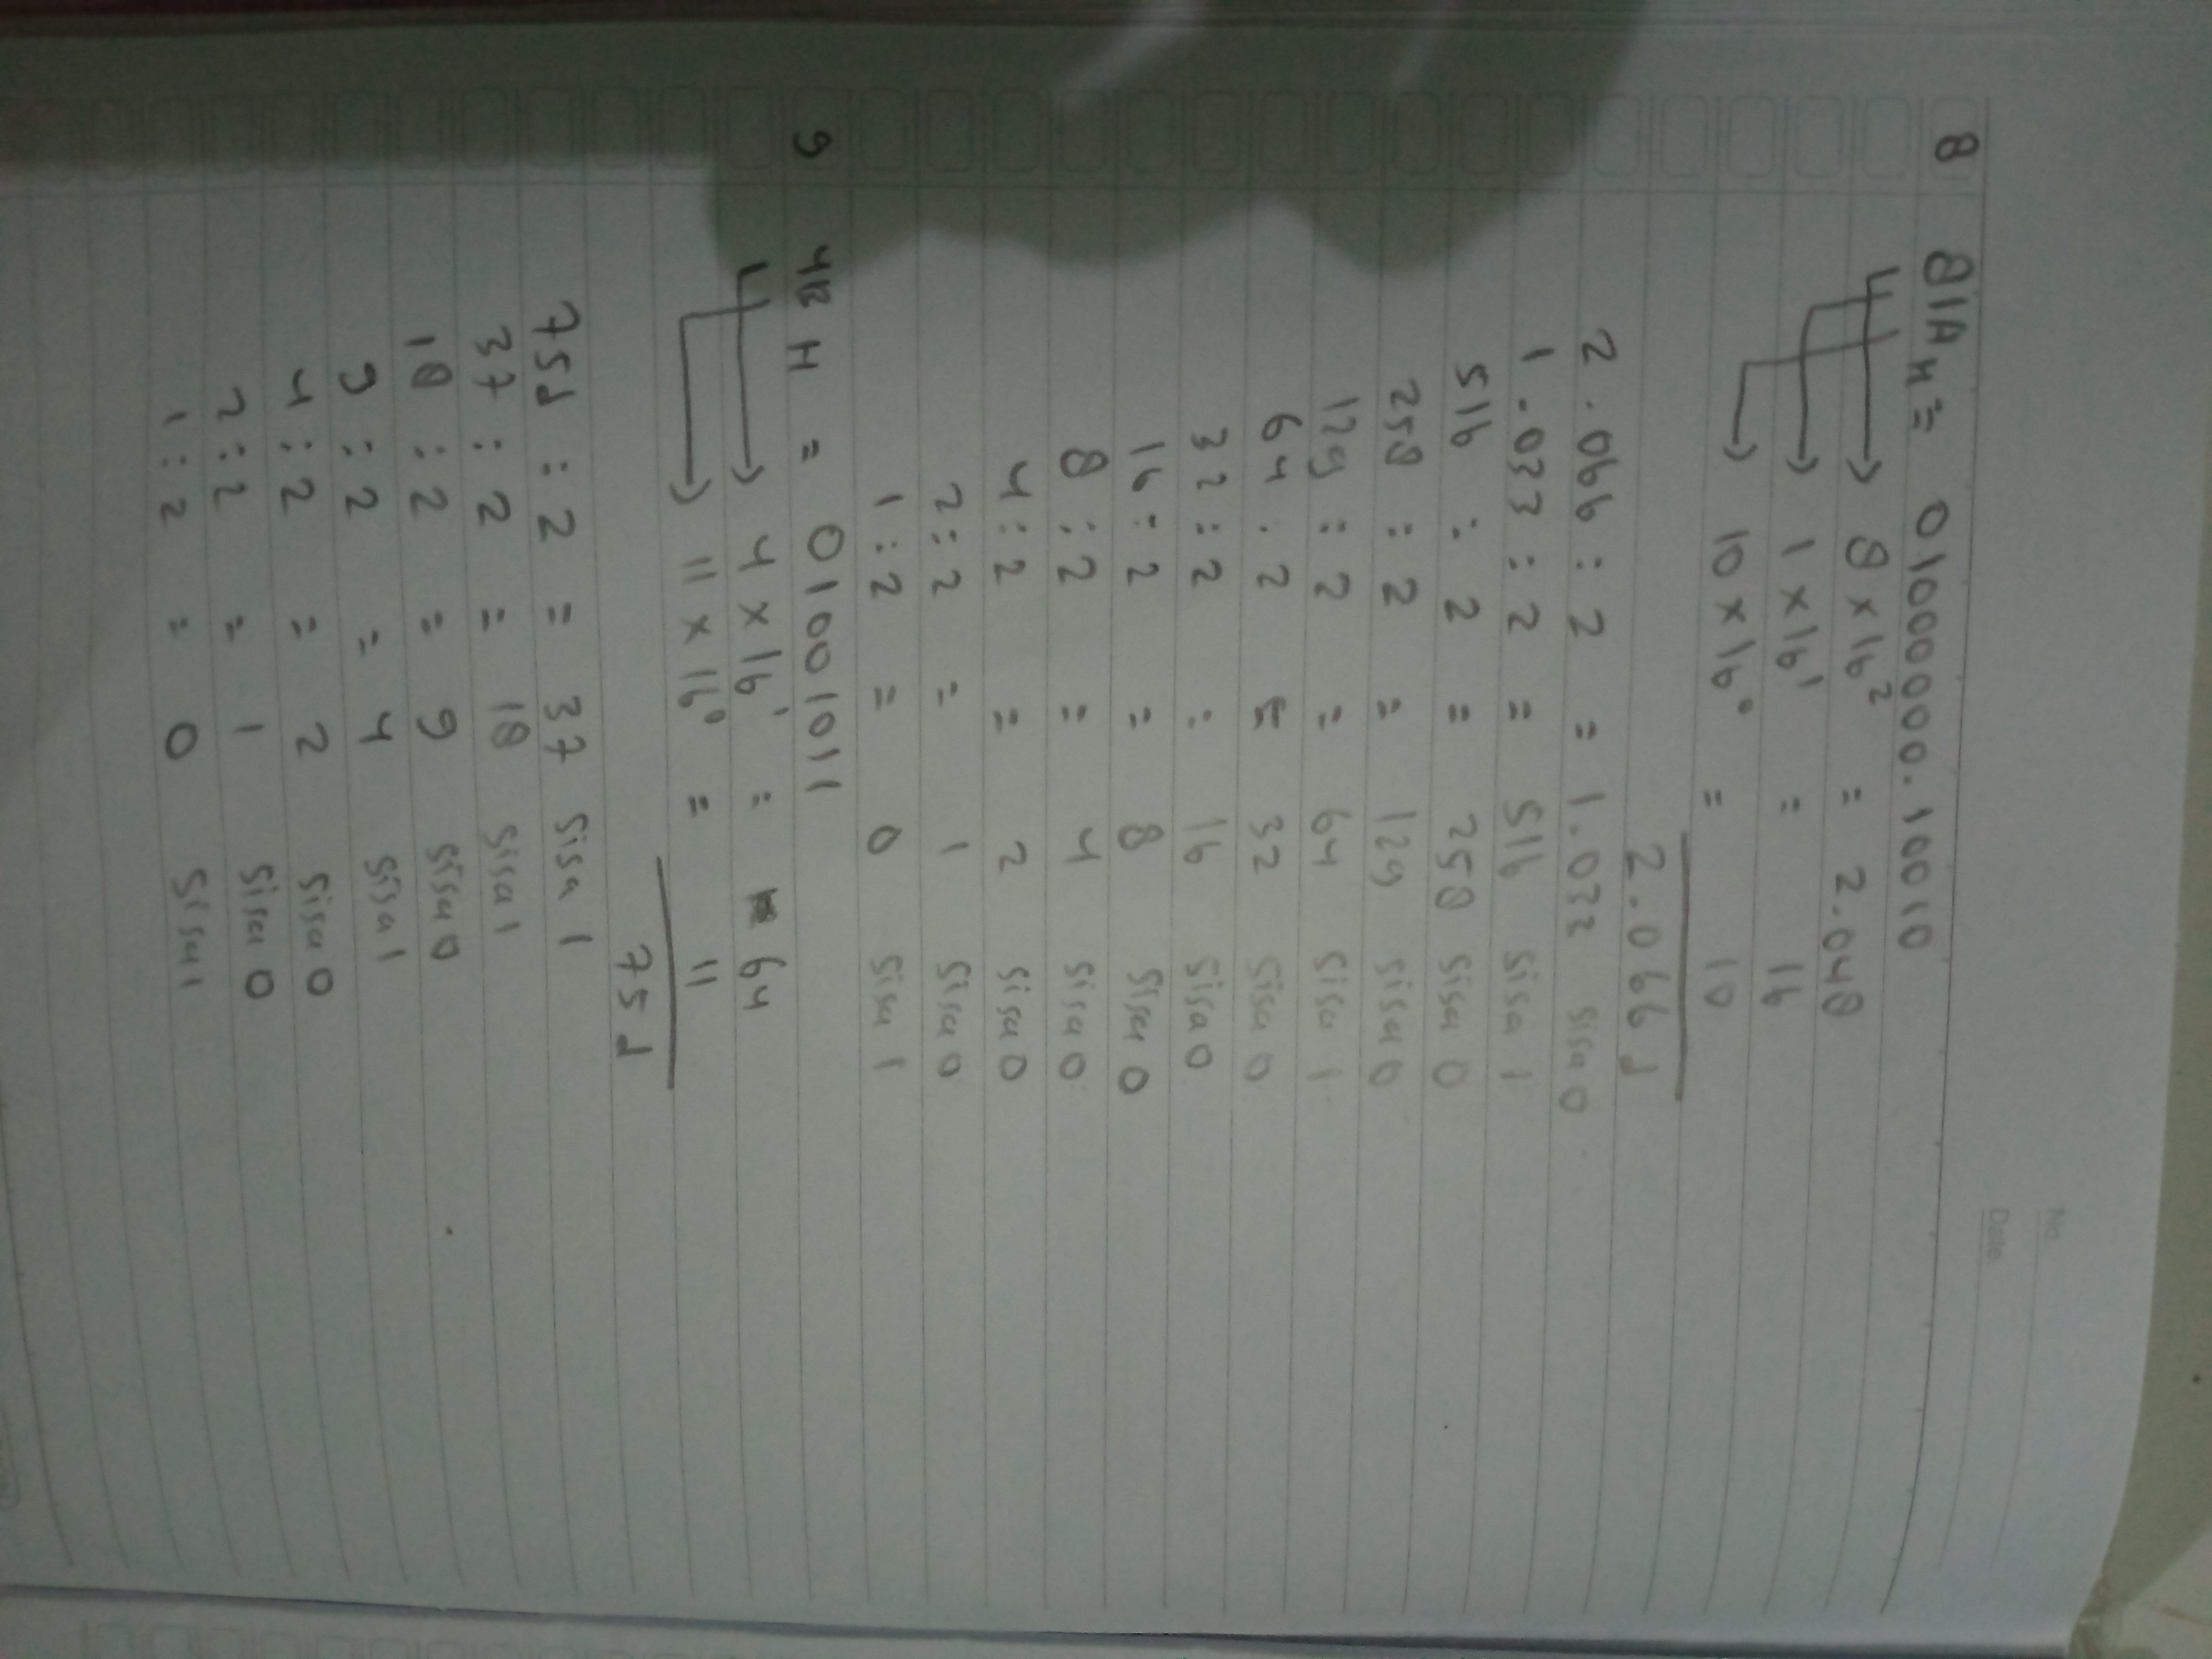 No
Date
8 81A H = 01000000.10010
8 x 16² = 2.048
1 x 16¹ = 16
10 x 16⁰ = 10
2.066 d
2.066 : 2 = 1.033 sisa 0
1.033 : 2 = 516 sisa 1
516 : 2 = 258 sisa 0
258 : 2 = 129 sisa 0
129 : 2 = 64 sisa 1
64 : 2 = 32 sisa 0
32 : 2 = 16 sisa 0
16 : 2 = 8 sisa 0
8 : 2 = 4 sisa 0
4 : 2 = 2 sisa 0
2 : 2 = 1 sisa 0
1 : 2 = 0 sisa 1
9 4B H = 01001011
4 x 16¹ = 64
11 x 16⁰ = 11
75 d
75d : 2 = 37 sisa 1
37 : 2 = 18 sisa 1
18 : 2 = 9 sisa 0
9 : 2 = 4 sisa 1
4 : 2 = 2 sisa 0
2 : 2 = 1 sisa 0
1 : 2 = 0 sisa 1